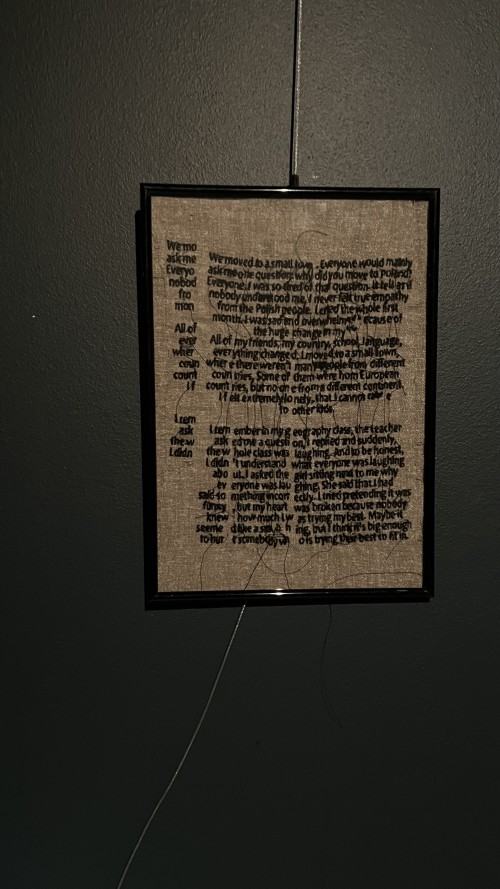 We mo
ask me
Everyo
nobod
fro
mon
All of
ever
wher
coun
count
I f
I rem
ask
the w
I didn
We moved to a small town. Everyone would mainly
ask me one question: why did you move to Poland?
Everyone. I was so tired of that question. It felt as if
nobody understood me, I never felt true empathy
from the Polish people. I cried the whole first
month. I was sad and overwhelmed because of
the huge change in my
All of my friends, my country, school, language,
everything changed. I moved to a small town,
wher e there weren't many people from different
coun tries. Some of them were from European
count ries, but no on e from a different continent.
I f elt extremely lo nely, that I cannot
to other kids.
I rem ember in my g eography class, the teacher
ask ed me a questi on, I replied and suddenly,
the w hole class was laughing. And to be honest,
I didn 't understand what everyone was laughing
abo ut. I asked the girl sitting next to me why
ev eryone was lau ghing. She said that I had
said so mething incorr ectly. I tried pretending it was
funny , but my heart was broken because nobody
knew how much I w as trying my best. Maybe it
seeme d like a small th ing, but I think it's big enough
to hur t somebody wh o is trying their best to fit in.